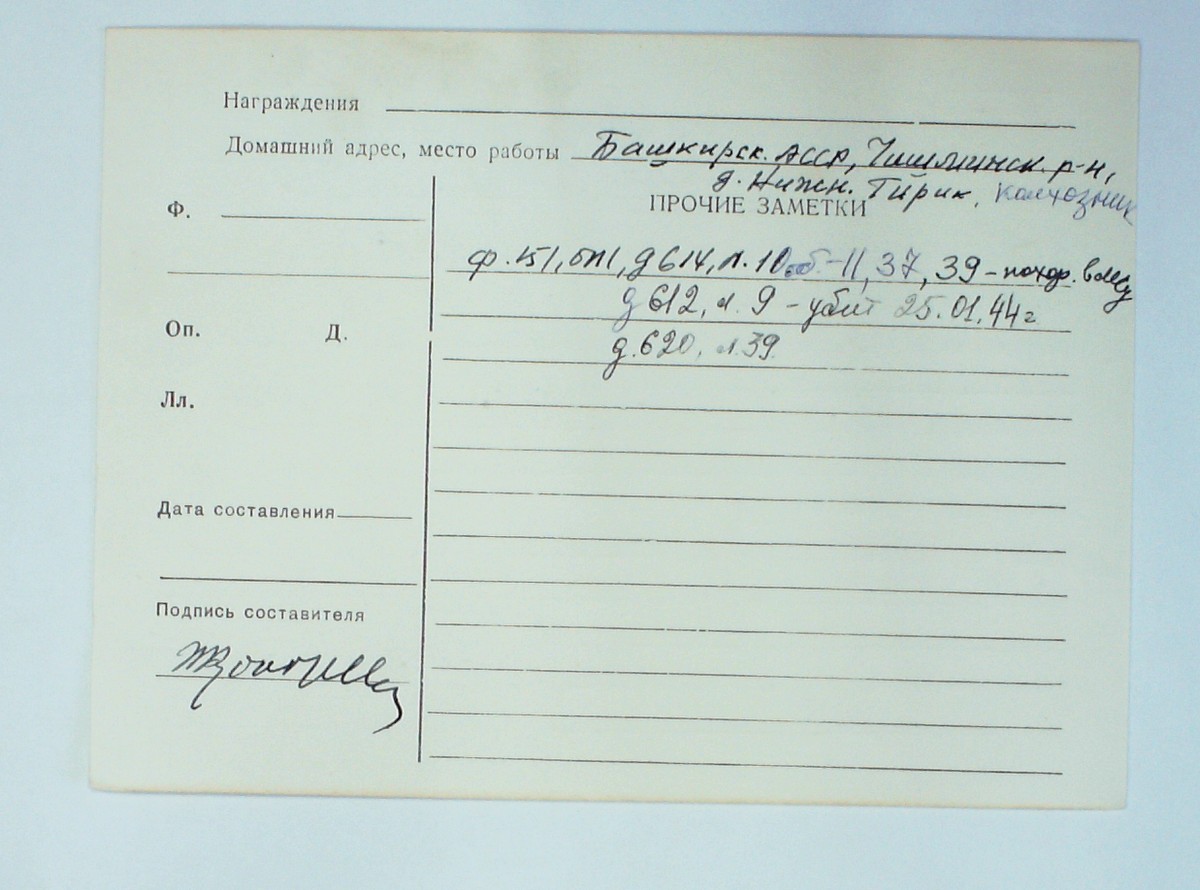 Награждения
Домашний адрес, место работы Башкирск. АССР, Чишминск. р-н,
д. Нижн. Тирик, колхозник
ПРОЧИЕ ЗАМЕТКИ
Ф.
ф. 151, оп1, д 614, л. 10об-11, 37, 39 - похор. в лесу
д 612, л. 9 - убит 25.01.44 г
Оп. Д.
д. 620, л. 39.
Лл.
Дата составления
Подпись составителя